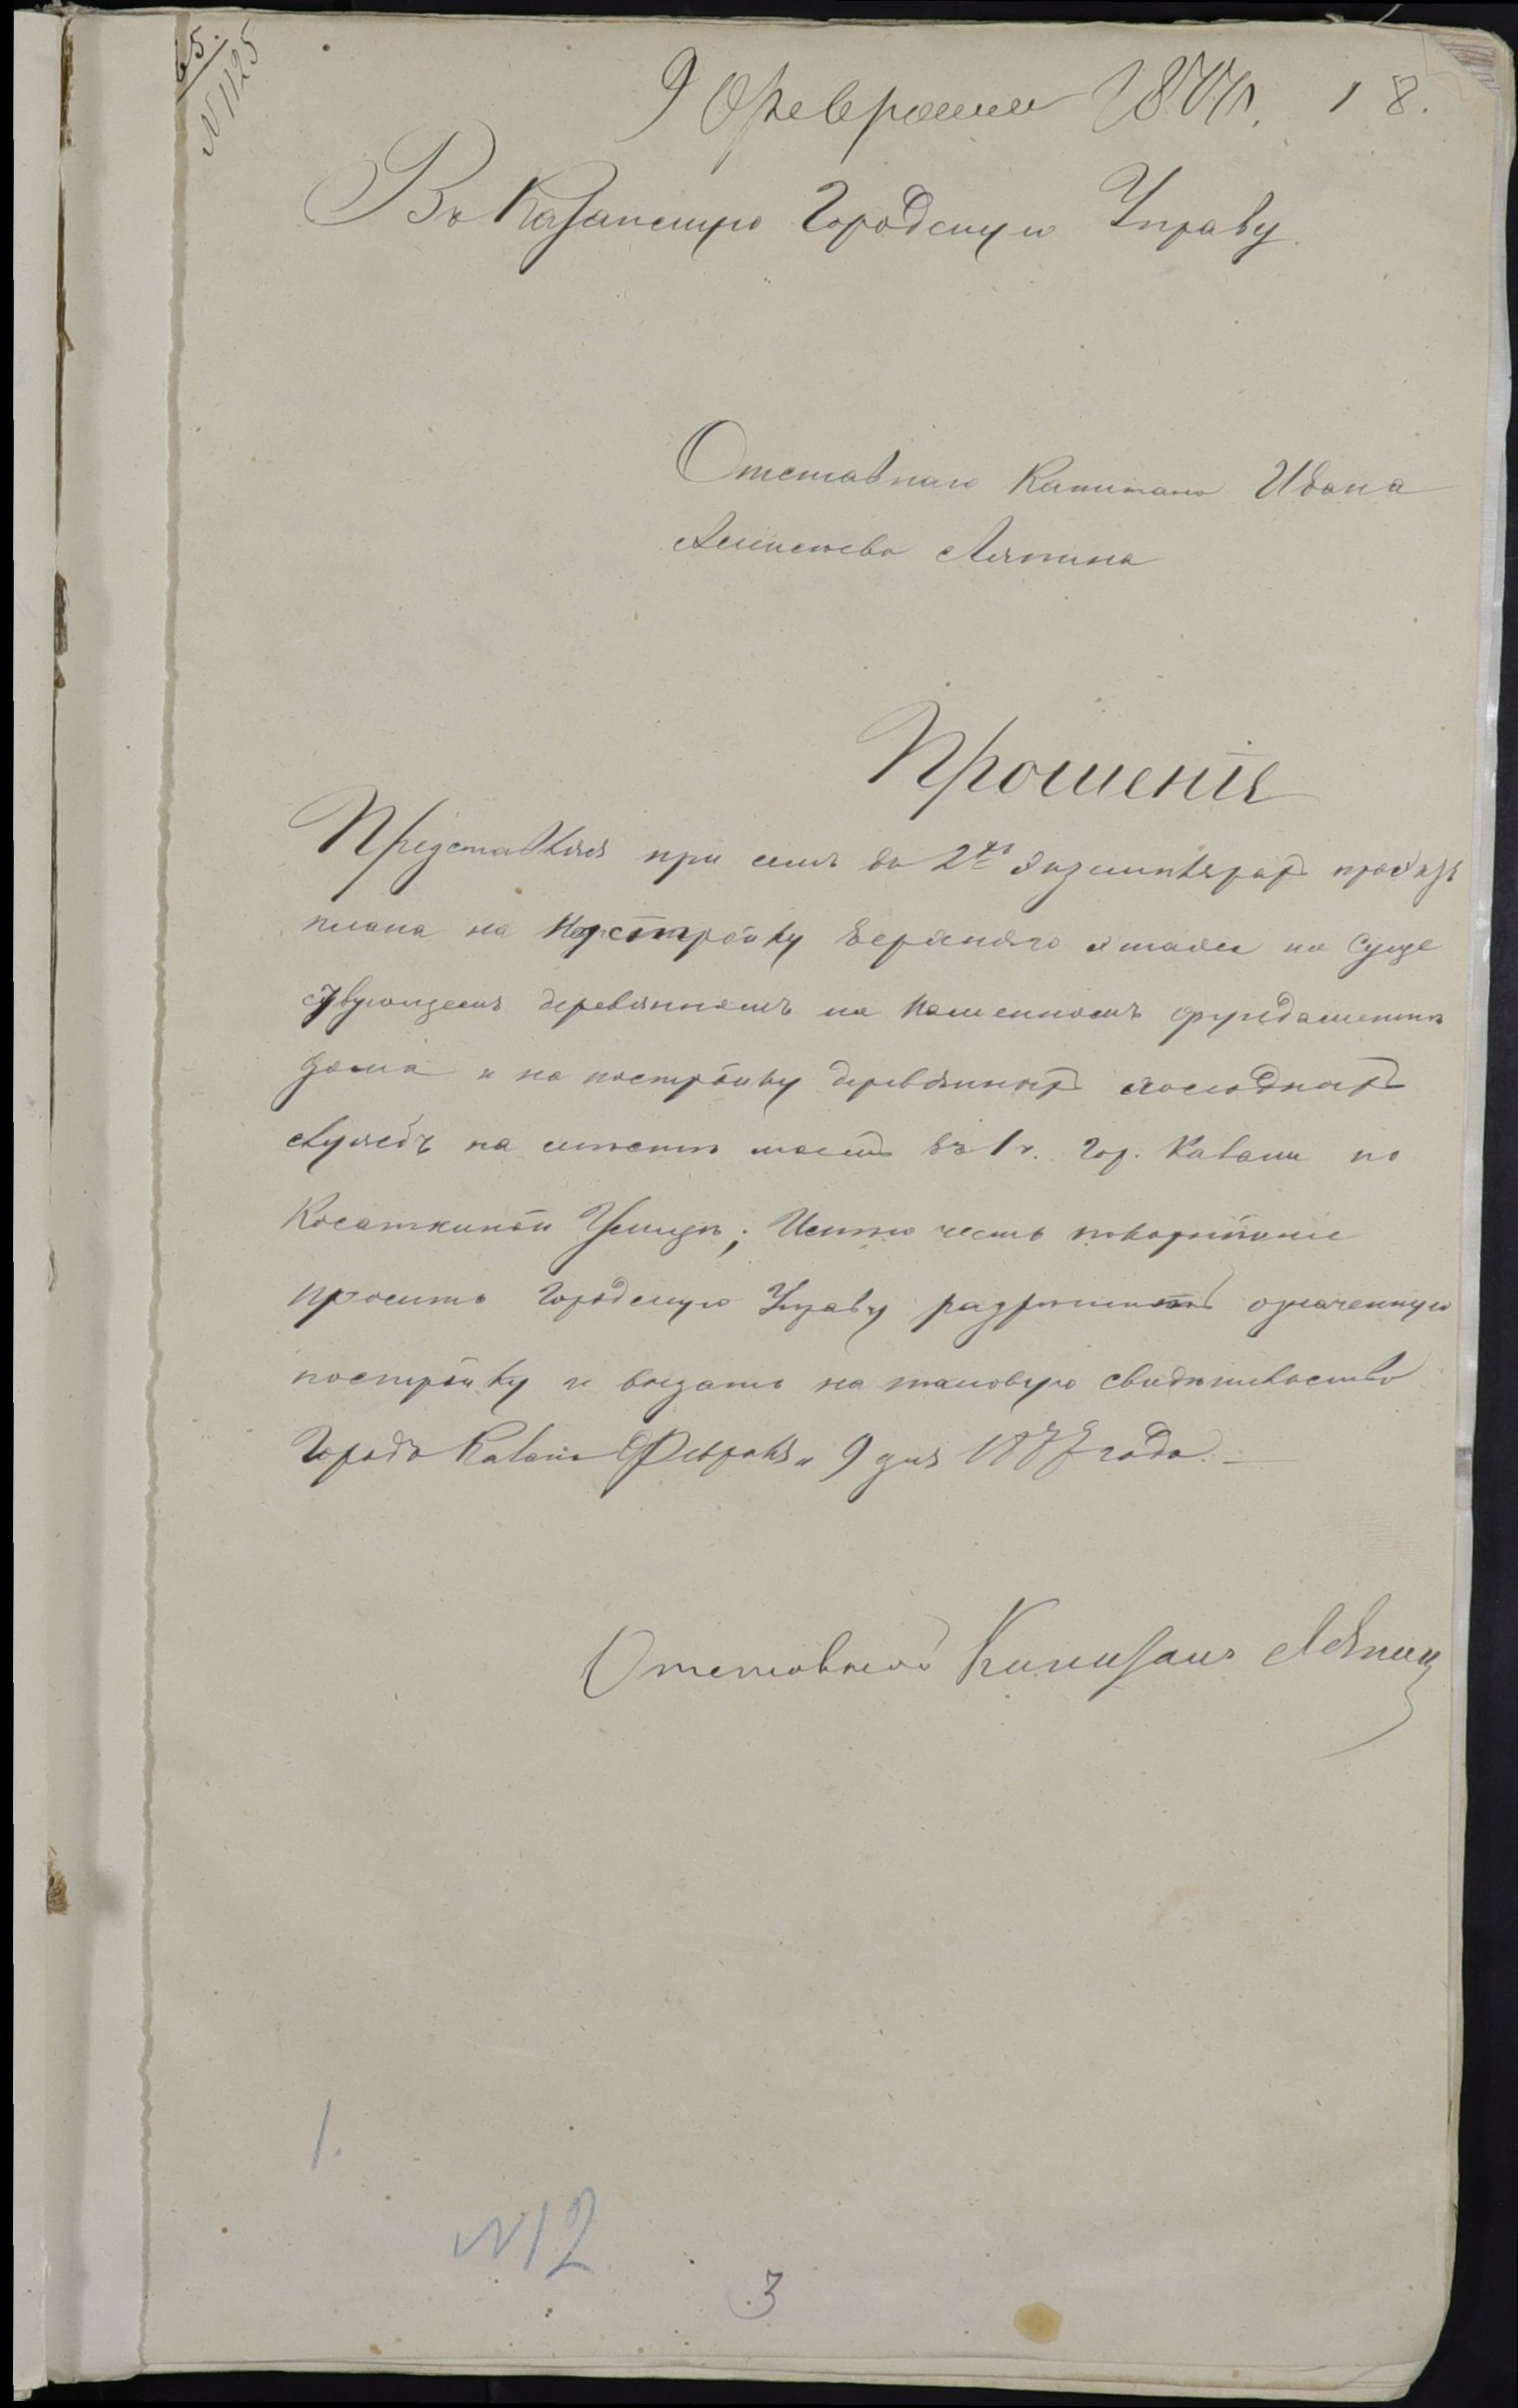 65.
N 1125
9 Февраля 1877 г. 18.
Въ Казанскую Городскую Управу
Отставнаго Капитана Ивана
Ляпина
Прошенія
Представляя при семъ въ 2хъ экземплярахъ проэктъ
плана на надстройку верхняго этажа на суще
ствующемъ деревянномъ на каменномъ фундаменте
дома и на постройку деревянныхъ холодныхъ
службъ на место въ 1 ч. Гор. Казани по
Косаткиной Улице; Имею честь покорнейше
просить Городскую Управу разрешить означенную
постройку и выдать на таковую свидетельство
Городъ Казань Февраля 9 дня 1877 года.
Отставной Капитанъ Ляпин
1.
N 12
3